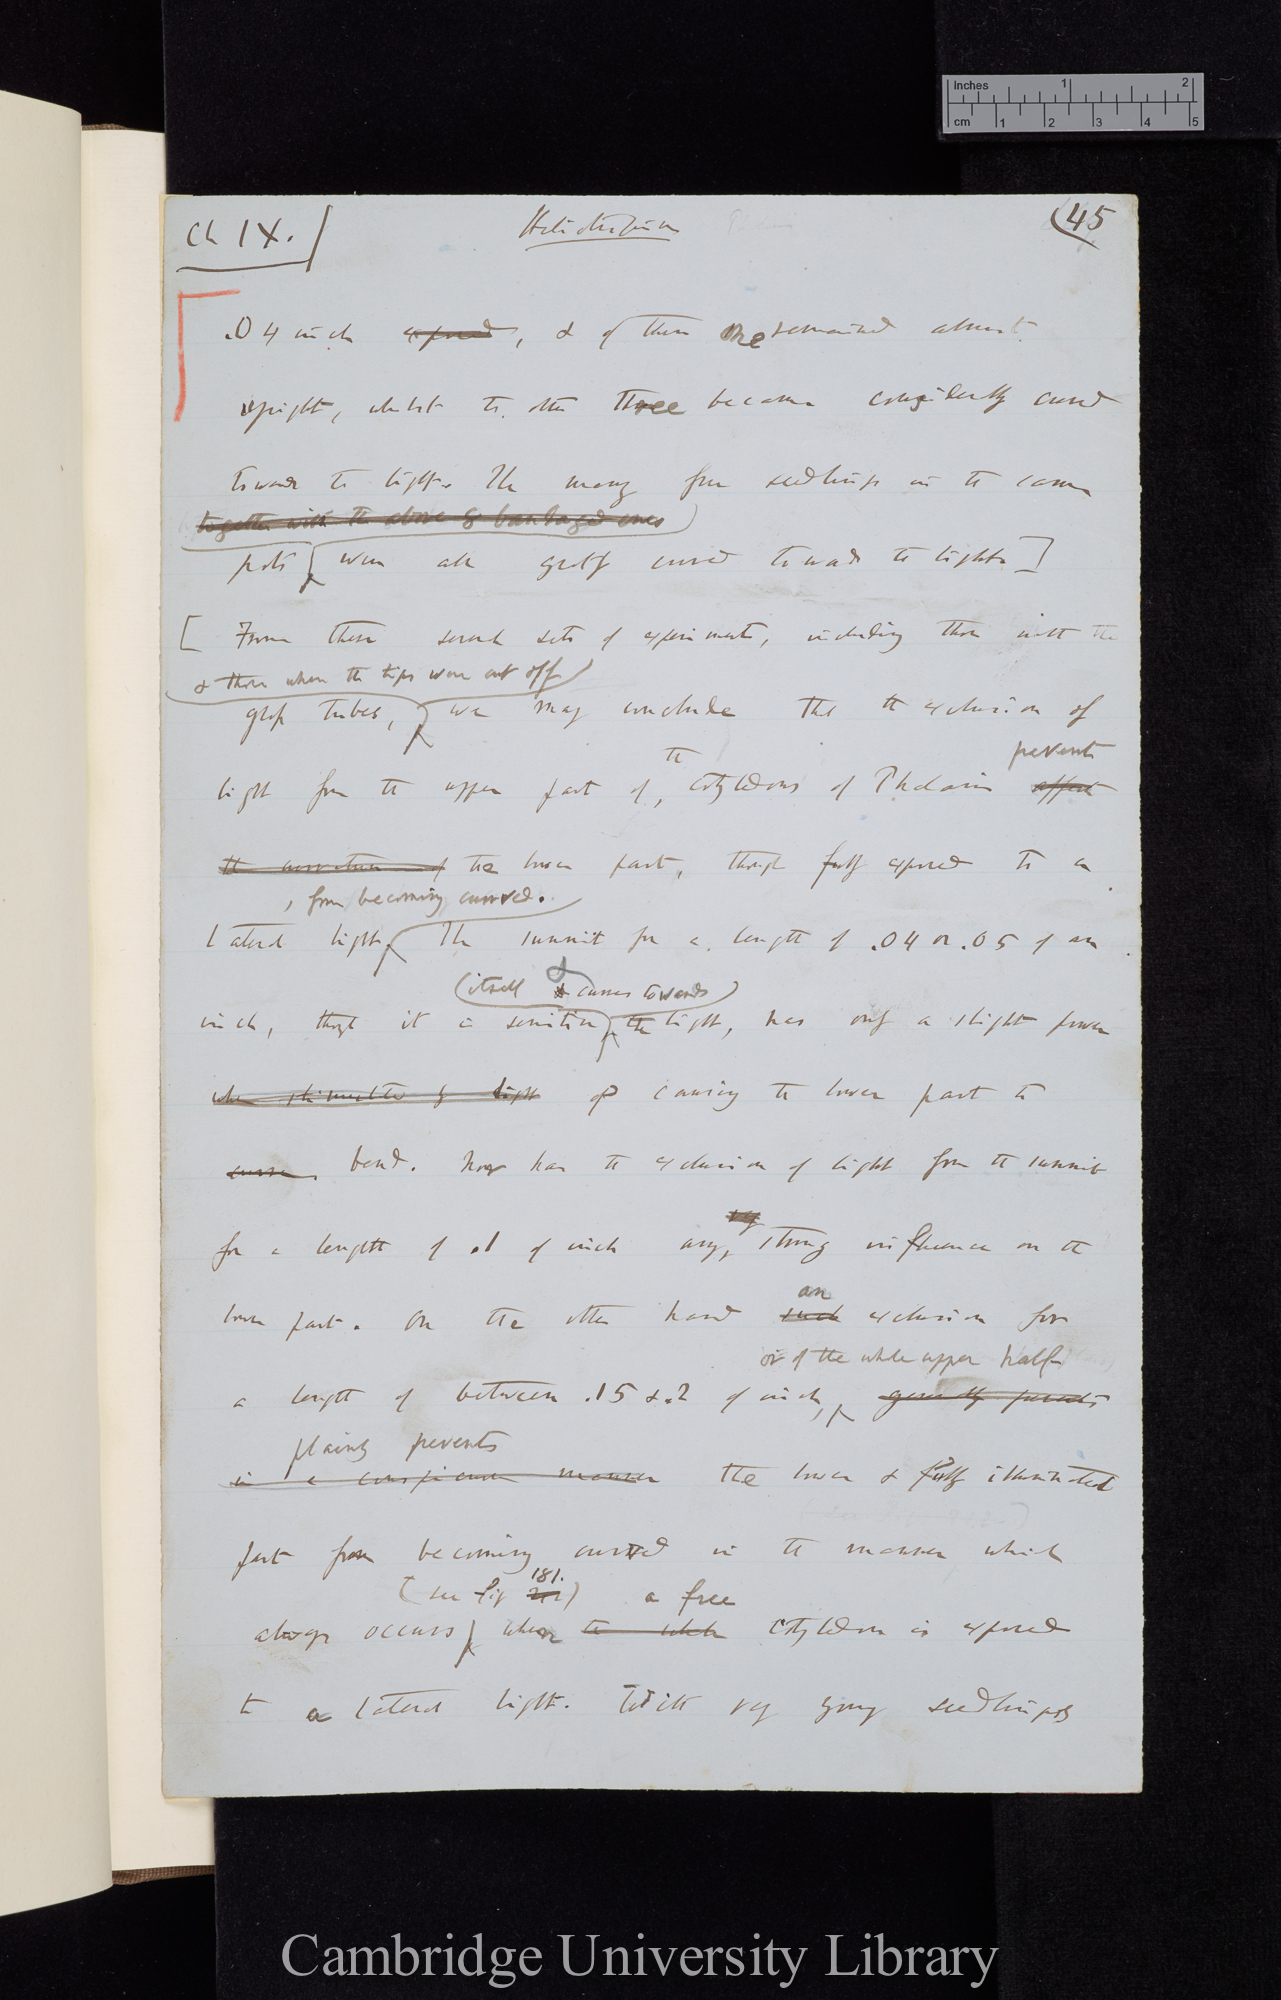 inches 1 2
cm 1 2 3 4 5
Ch IX.
Heliotropism
45
.04 inch exposed, & of these one remained almost
upright, whilst the other three became considerably curved
towards the light. The many free seedlings in the same
together with the above 8 bandaged ones
pots were all greatly curved towards the light.]
[From these several sets of experiments, including those with the
& those when the tips were cut off
glass tubes, we may conclude that the exclusion of
prevents
the
light from the upper part of, cotyledons of Phalaris affects
the curvature of the lower part, though fully exposed to a
, from becoming curved.
lateral light. The summit for a length of .04 or .05 of an
(itself & curves towards)
inch, though it is sensitive the light, has only a slight power
when stimulated by light of causing the lower part to
curve bend. Nor has the exclusion of light from the summit
very
for a length of .1 of inch any, strong influence on the
lower part. On the other hand such exclusion for
an
or of the whole upper half
a length of between .15 & .2 of inch, generally prevents
plainly prevents
in a conspicuous manner the lower & fully illuminated
part from becoming curved in the manner which
(see fig 181.)
a free
always occurs when the whole cotyledon is exposed
to a lateral light. With very young seedlings
Cambridge University Library